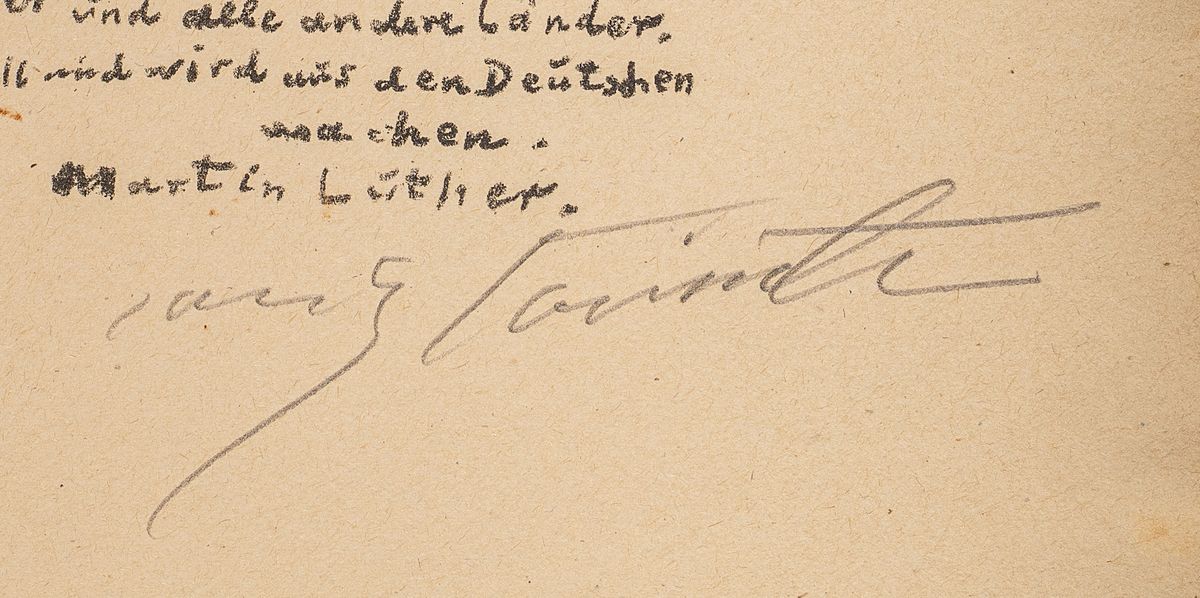 und alle andere Länder.
und wird aus den Deutschen
machen.
Martin Luther.
Lovis Corinth